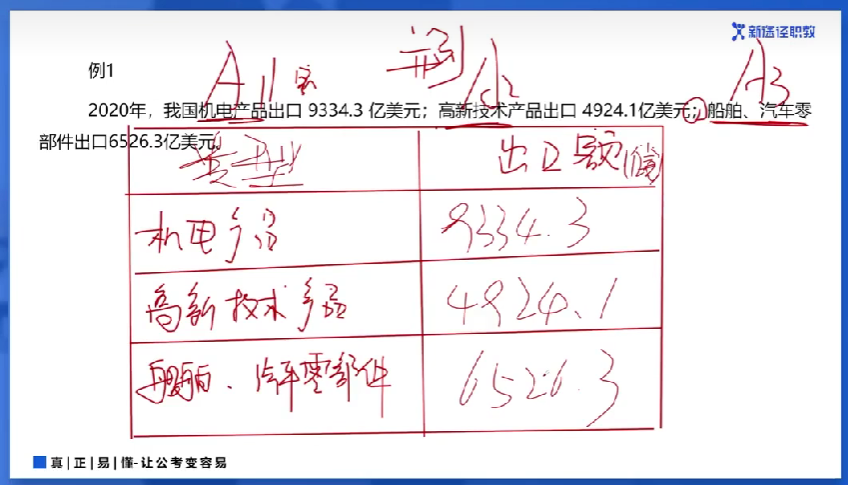 新途径职教
例1
A1 并列 A2 A3
2020年，我国机电产品出口 9334.3 亿美元；高新技术产品出口 4924.1亿美元；船舶、汽车零
部件出口6526.3亿美元。
类型 出口额(亿)
机电产品 9334.3
高新技术产品 4924.1
船舶、汽车零部件 6526.3
真|正|易|懂-让公考变容易